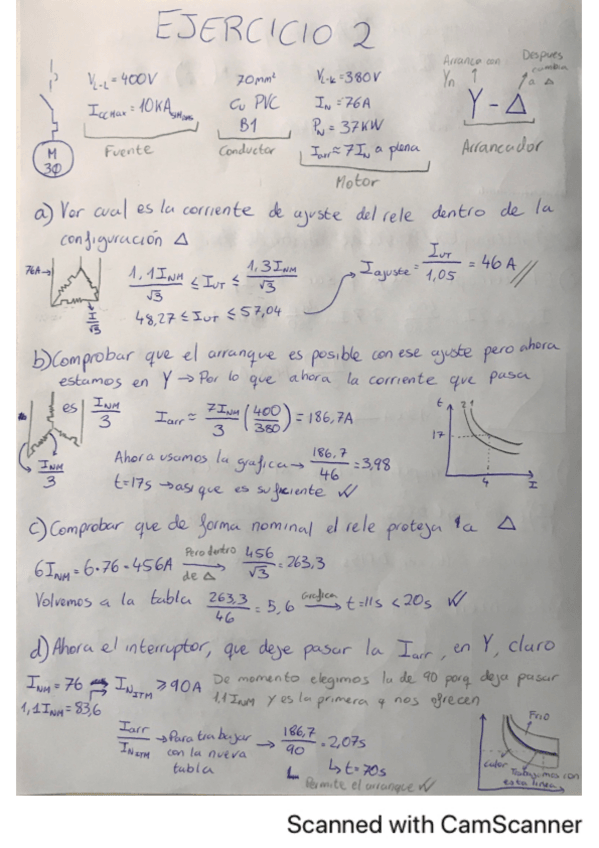 EJERCICIO 2
V_L-L = 400V
I_CCMax = 10KA
Fuente
70mm²
Cu PVC
B1
Conductor
V_L-L = 380V
I_N = 76A
P_N = 37KW
I_arr ≈ 7I_N a plena
Motor
Arranca en Yn
Despues cambia a Δ
Y - Δ
Arrancador
M
3Φ
a) Ver cual es la corriente de ajuste del rele dentro de la
configuración Δ
76A→
I/√3
1,1I_NM/√3 ≤ I_VT ≤ 1,3I_NM/√3
48,27 ≤ I_VT ≤ 57,04
I_ajuste = I_VT/1,05 = 46A
b) Comprobar que el arranque es posible con ese ajuste pero ahora
estamos en Y → Por lo que ahora la corriente que pasa
es I_NM/3
I_NM/3
I_arr ≈ 7I_NM/3 (400/380) = 186,7A
Ahora usamos la grafica → 186,7/46 = 3,98
t=17s → asi que es suficiente
t
21
17
4
I
c) Comprobar que de forma nominal el rele proteja la Δ
6I_NM = 6·76 = 456A
Pero dentro de Δ
456/√3 = 263,3
Volvemos a la tabla 263,3/46 = 5,6
Grafica
→ t=11s < 20s
d) Ahora el interruptor, que deje pasar la I_arr, en Y, claro
I_NM = 76
I_NITM ≥ 90A
1,1I_NM = 83,6
De momento elegimos la de 90 porq deja pasar
1,1I_NM y es la primera q nos ofrecen
I_arr/I_NITM → Para trabajar con la nueva tabla → 186,7/90 = 2,07s
↳ t=70s
Permite el arranque
Frio
calor
Trabajamos con esta linea
Scanned with CamScanner